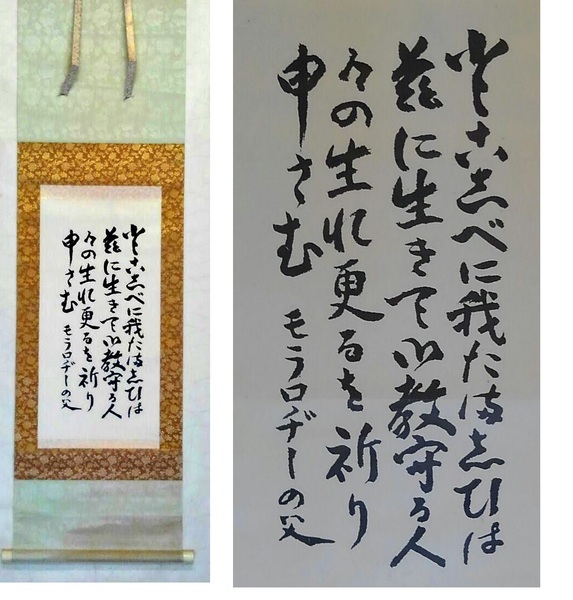 とこしべに我たましひは
茲に生きて御教守る人
々の生れ更るを祈り
申さむ モラロヂーの父
とこしべに我たましひは
茲に生きて御教守る人
々の生れ更るを祈り
申さむ モラロヂーの父